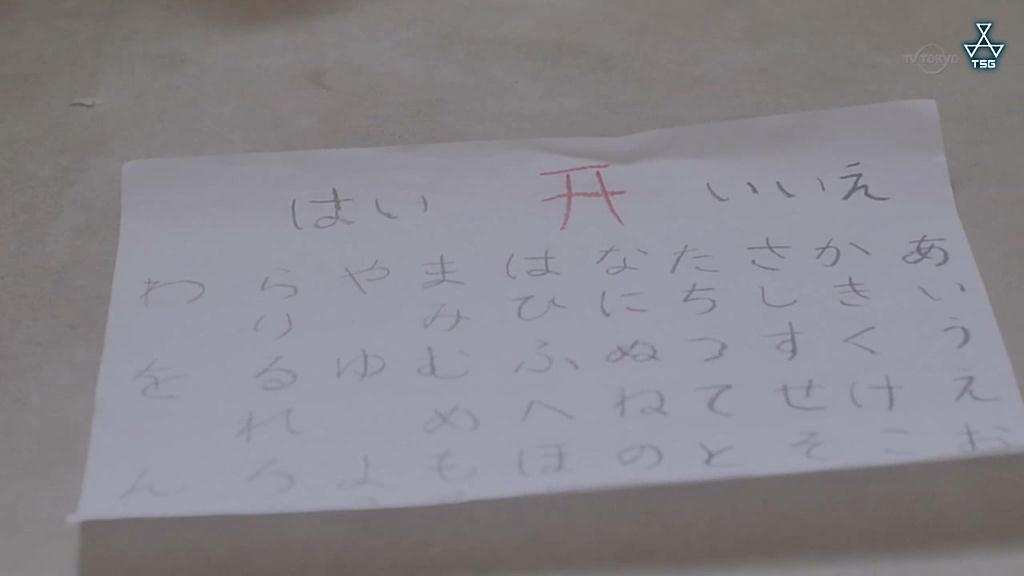 TV TOKYO
TSG
はい いいえ
わ ら や ま は な た さ か あ
り み ひ に ち し き い
を る ゆ む ふ ぬ つ す く う
れ め へ ね て せ け え
ん ろ よ も ほ の と そ こ お